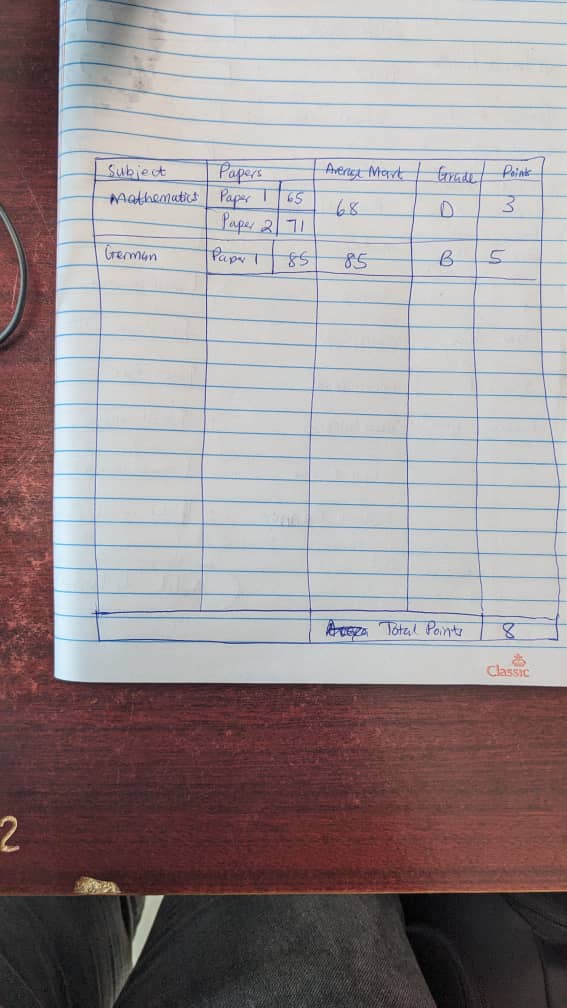 Subject Papers Average Mark Grade Points
Mathematics Paper 1 65 68 D 3
Paper 2 71
German Paper 1 85 85 B 5
Total Points 8
Classic
2